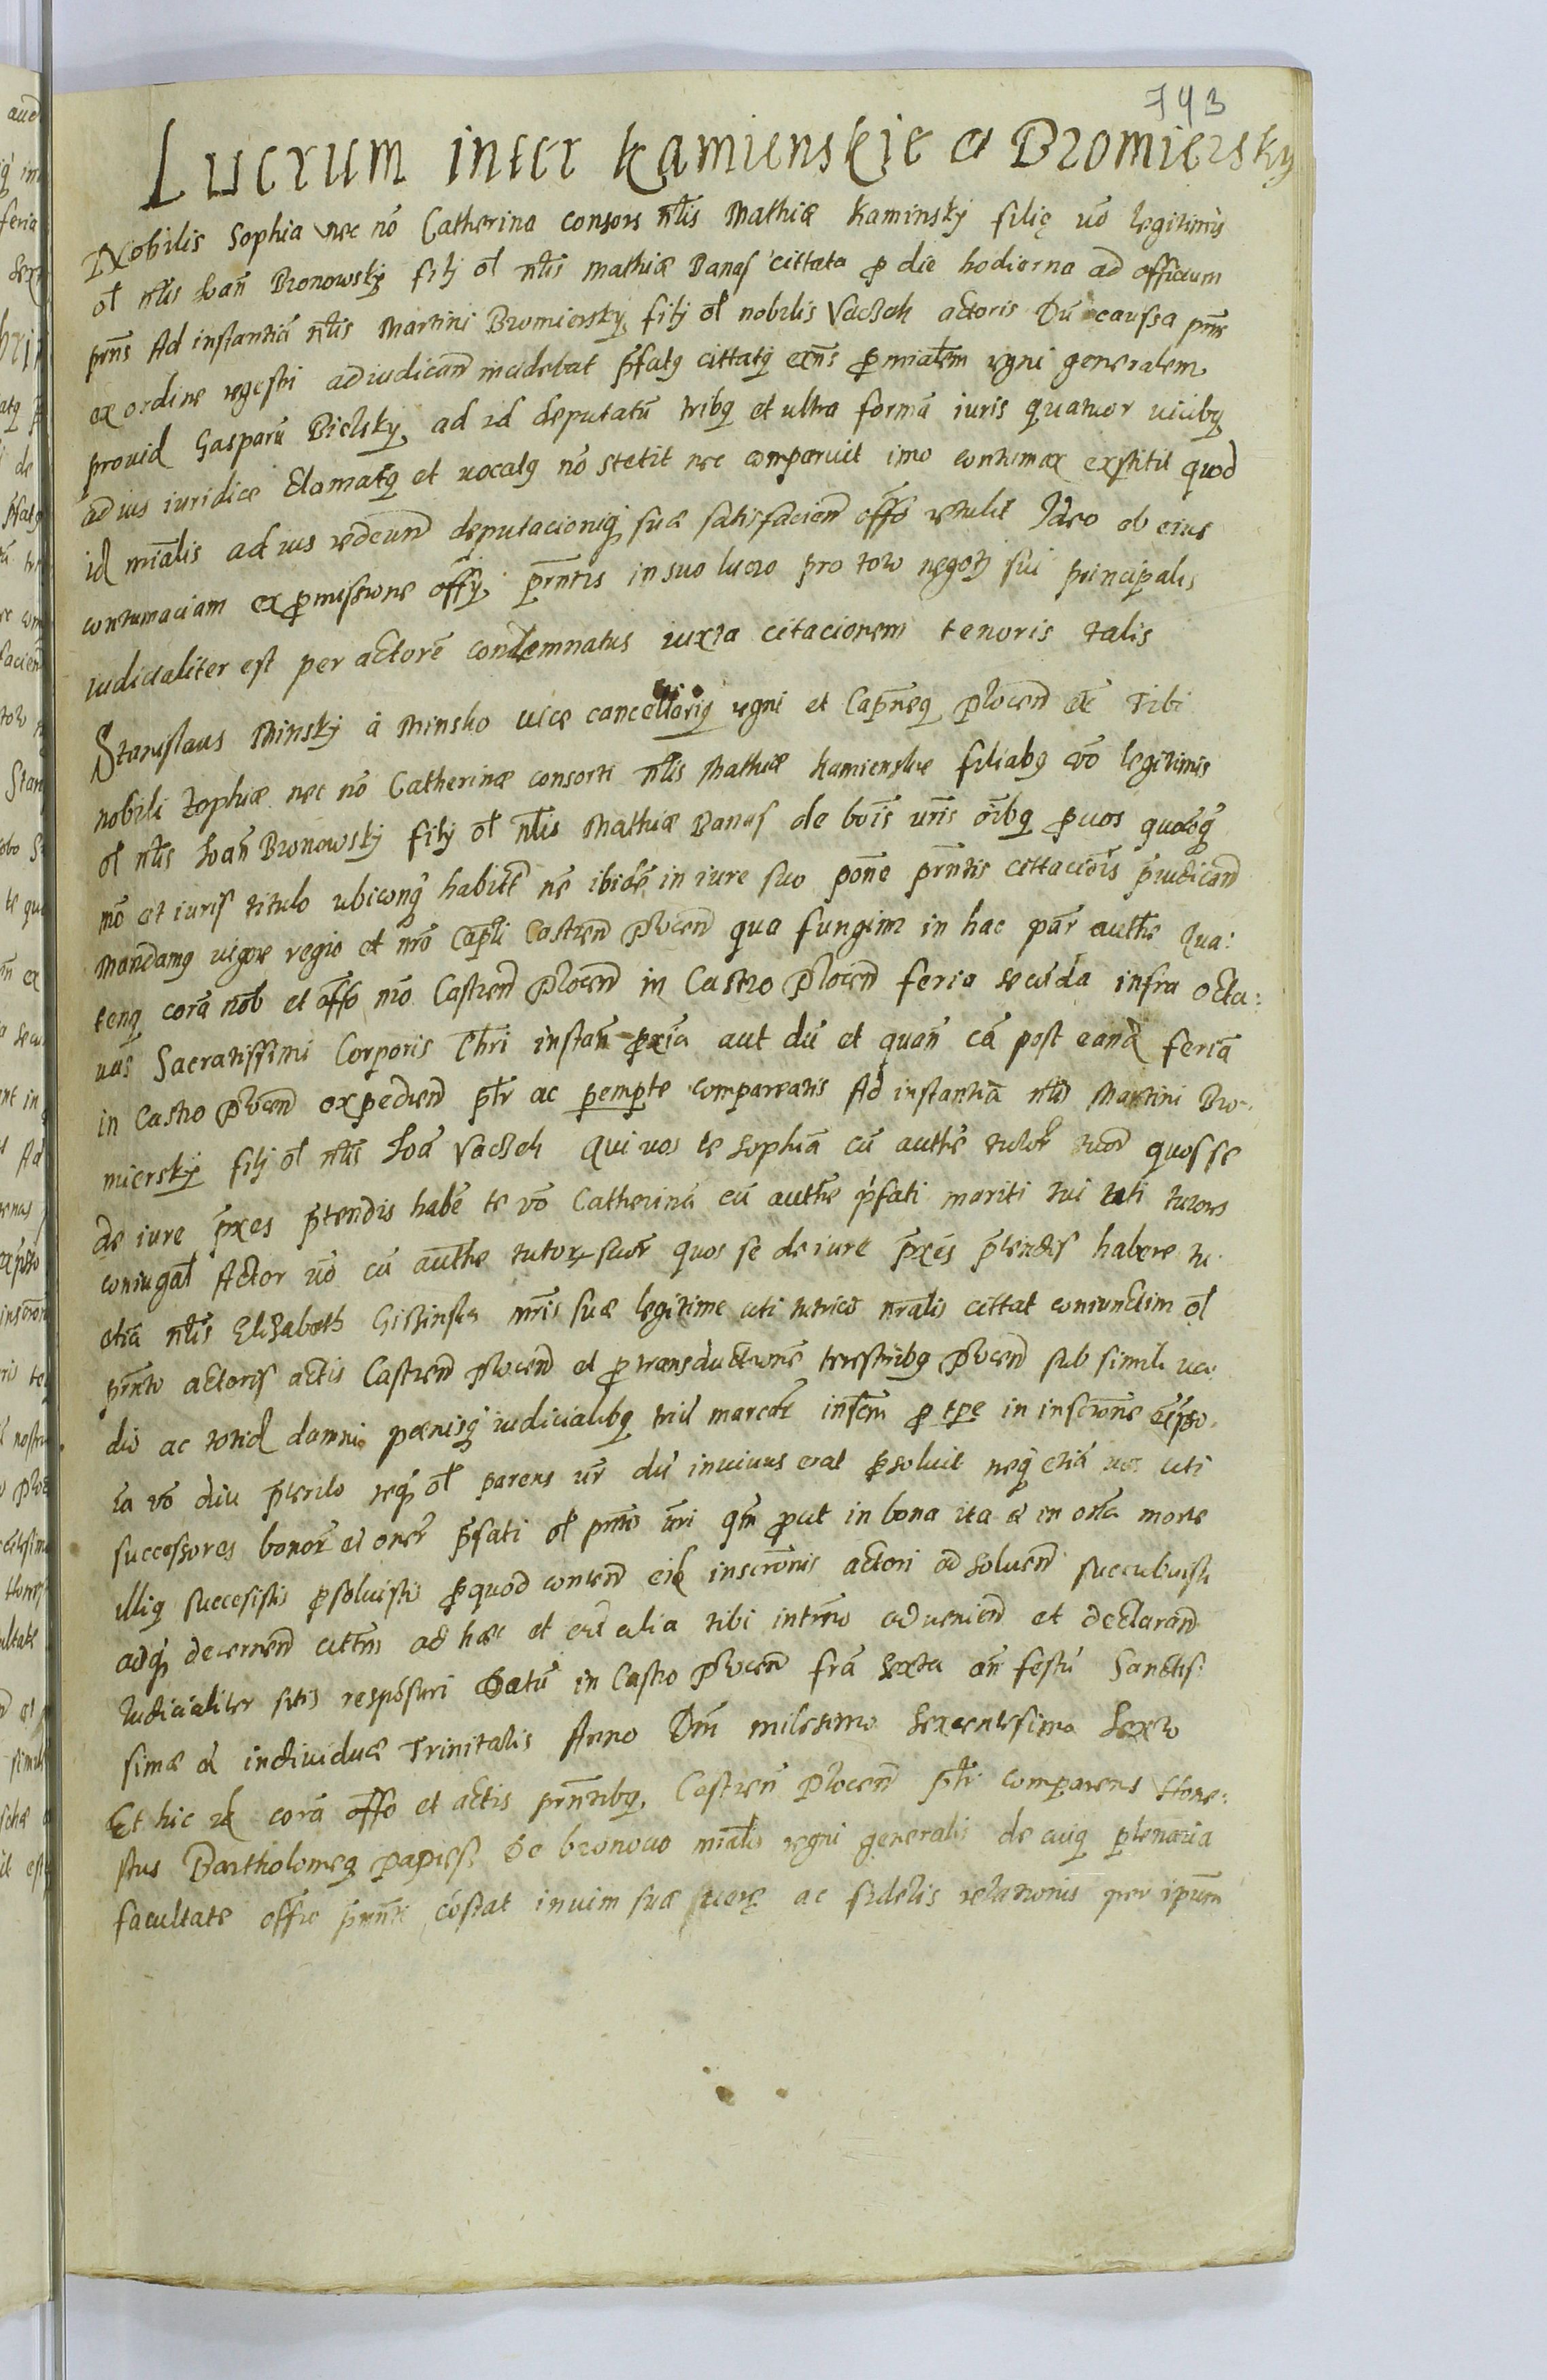 743
Lucrum inter Kamienskie et Bromiersky
Nobilis Sophia nec nō Catherina consors nlis Mathiæ Kaminskÿ filię vō legitimis
ol nlis Ioan Bronowskÿ filÿ ol nlis Mathiæ Banas cittata p die hodierna ad officium
prns Ad instantiā nlis Martini Bromiersky filÿ ol nobilis Vaczek actoris Dū caussa prns
ex ordine regestri adiudican incidebat pfatq cittatq exns p mialem regni generalem
provid Gasparū Bielsky ad id deputatū tribq et ultra formā iuris quatuor vicibq
ad ius iuridice clamatq et vocatq nō stetit nec comparuit imo contumax exstitit quod
id mialis ad ius redeund deputacioniq suæ satisfacien offo retulit Ideo ob eius
contumaciam ex pmissione offÿ prntis in suo lucro pro toto negotÿ sui principalis
iudicialiter est per actorē condemnatus iuxta citacionem tenoris talis
Stanislaus Minskÿ à Minsko vice cancellariq regni et Capneq Plocen etc Tibi
nobili Zophiæ nec nō Catherinæ consorti nlis Mathiæ Kamienskie filiabq vō legitimis
ol nlis Ioan Bronowskÿ filÿ ol nlis Mathiæ Banas de bois vris oibq p vos quocq
mō et iuris titulo ubicōnq habitt nē ibidē in iure suo pone prntis cittacois piudicand
Mandamq vigore regio et nro Capli Castren Plocen qua fungimr in hac par authe Qua:
tenq corā nob et offo nro Castren Plocen in Castro Plocen feria secūda infra octa:
vas Sacratissimi Corporis Chri instan pxia aut dū et quan cā post eand feriā
in Castro Plocen expedien pltr ac pempte compareatis Ad instantiā nlis Martini Bro-
mierskÿ filÿ ol nlis Ioā Vaczek Qui vos te Sophiā cū authe tutor tuor quos se
de iure pxes ptendis habē te vō Catherinā cū authe pfati mariti tui uti tutoris
coniugal Actor vō cū authe tutor suor quos se de iure pxes ptendis habere
etiā nlis Elizabeth mris suæ legitime uti tutricis nralis cittat coniunctim ol
prnto actoris actis Castren Plocen et p transductionē terrestribq Plocen sub simili va-
dio ac totid damni pœnisq iudicialibq triū marcar p tpe in inscrone
vō diu pterito neq ol parens vr dū in vivus erat psolvit neq etiā vos uti
successores bonor et oner pfati ol prntis vri qm put in bona ita et in ora morte
illiq succesistis psolvistis p quod conten eid inscronis actori ad solven succubuisti
adq decernen cittms ad hæc et oia alia tibi intrmo advenien et declarand
Iudicialiter sitis respōsuri Datū in Castro Plocen fra sexta an festū Sanctis:
simæ et individuæ Trinitatis Anno Dni milesimo Sexcentesimo Sexto
Et hic id corā offo et actis prntibq Castren Plocen pltr comparens Hone:
stus Bartholomeq Papies de bronovo mialis regni generalis de cuiq plenaria
facultate offo prnti cōstat in vim suæ veræ ac fidelis relationis per ipsum